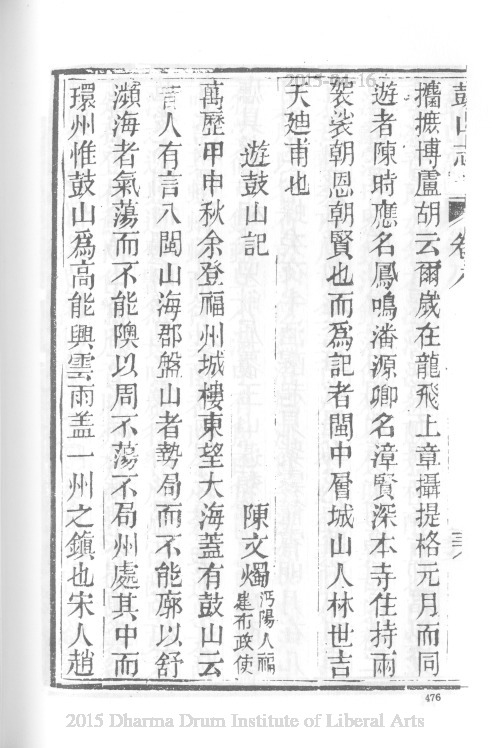 鼓山志
卷八
攟摭博盧胡云爾歲在龍飛上章攝提格元月而同
遊者陳時應名鳳鳴潘源卿名漳賢深本寺住持兩
袈裟朝恩朝賢也而爲記者閩中層城山人林世吉
天廸甫也
遊鼓山記
陳文燭
沔陽人福
建布政使
萬歷甲申秋余登福州城樓東望大海蓋有鼓山云
言人有言八閩山海郡盤山者勢局而不能廓以舒
瀕海者氣蕩而不能隩以周不蕩不局州處其中而
環州惟鼓山爲高能興雲雨盖一州之鎭也宋人趙
476
2015-04-16
2015 Dharma Drum Institute of Liberal Arts